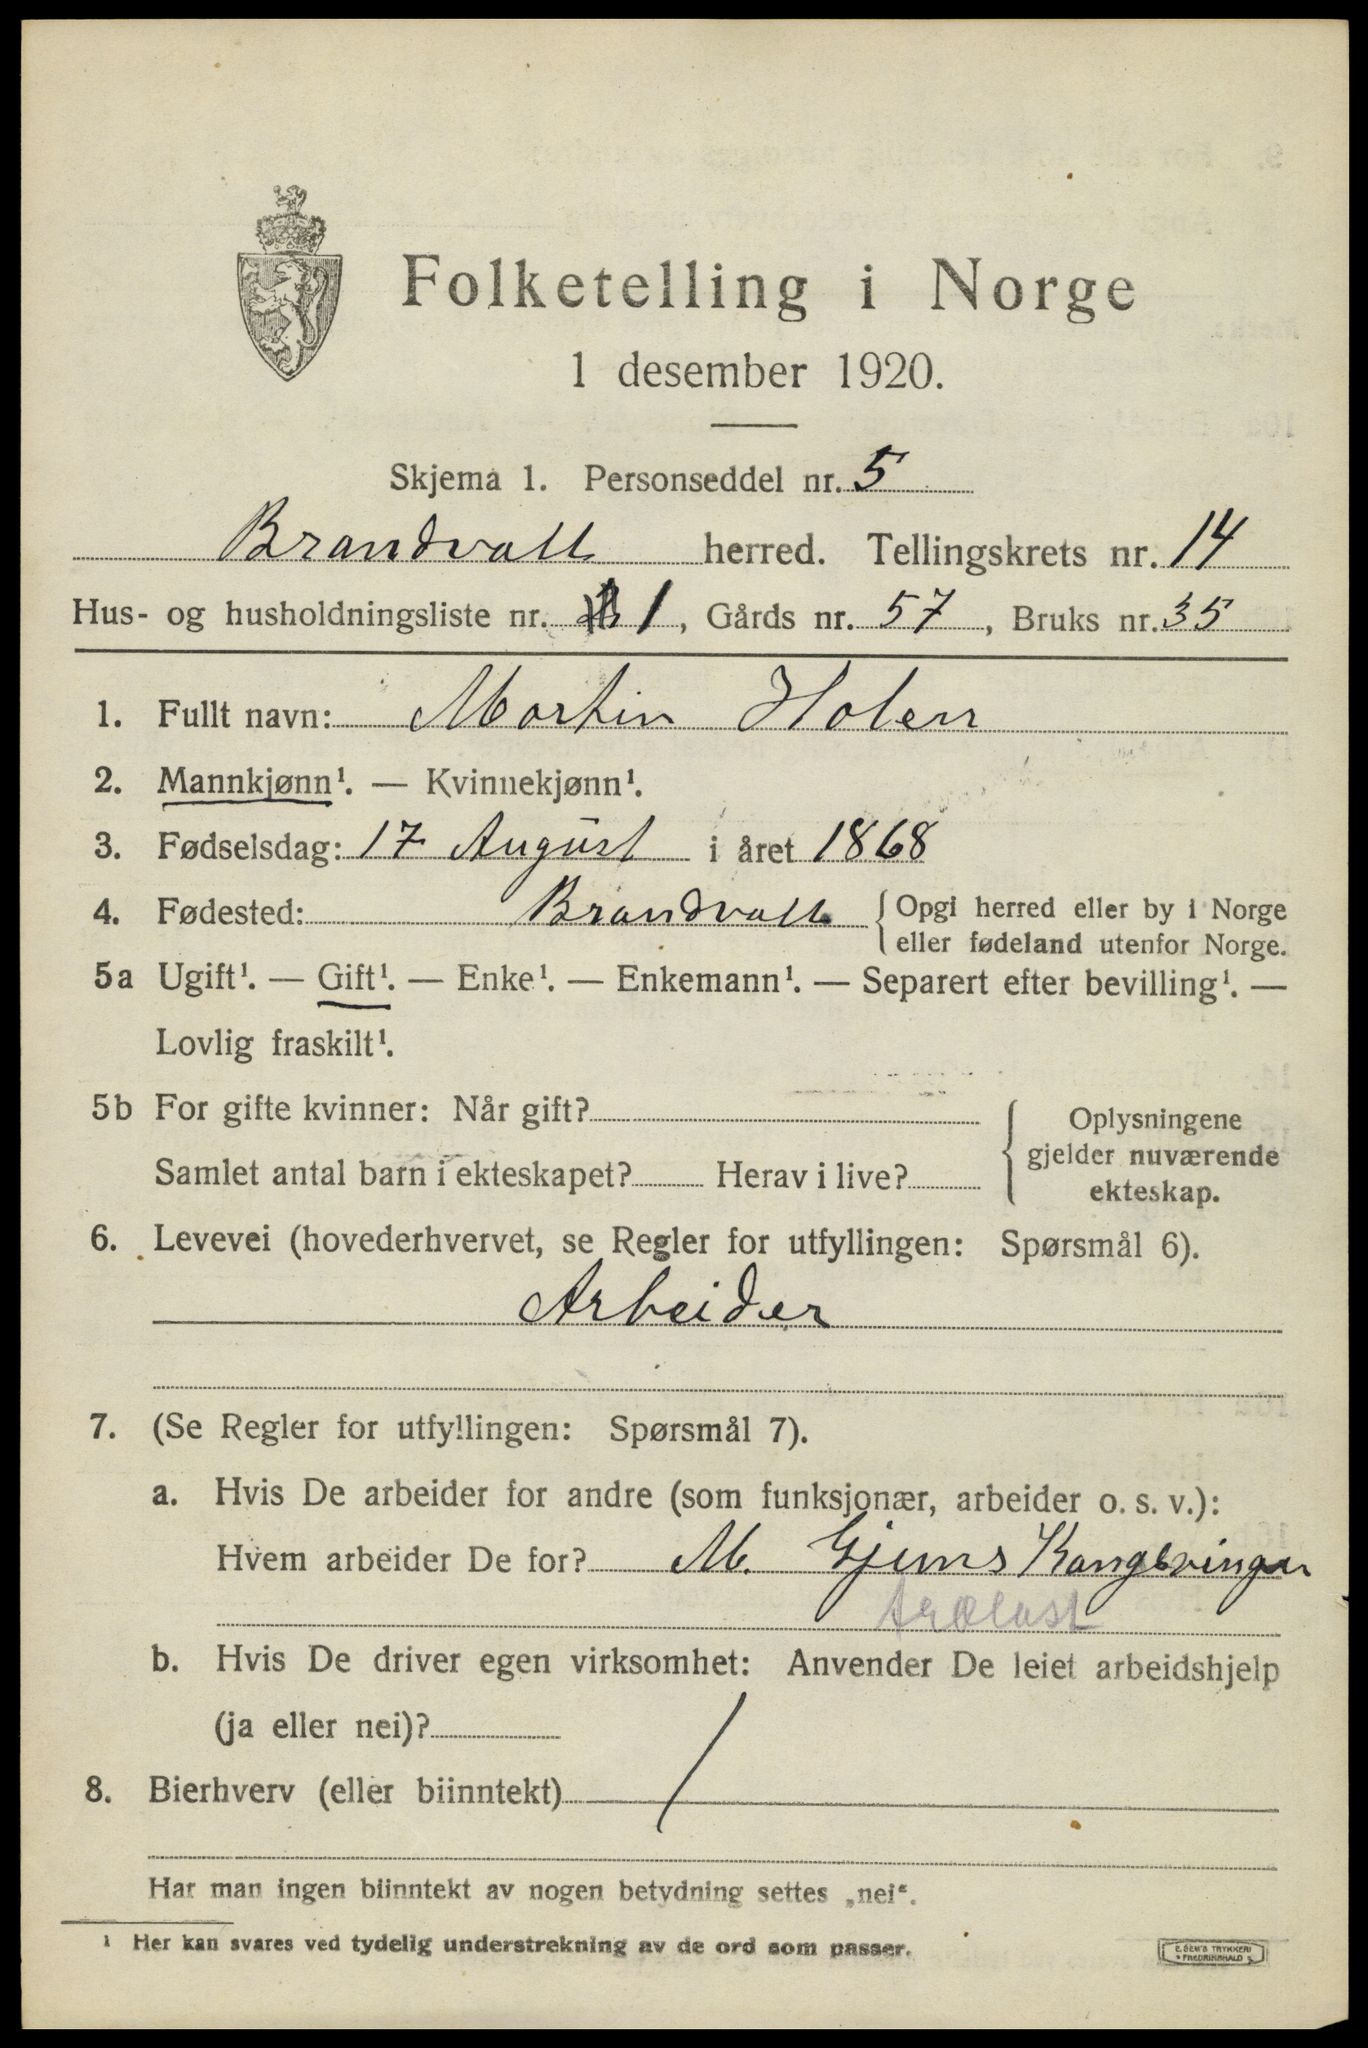 Folketelling i Norge
1 desember 1920.
Skjema 1. Personseddel nr. 5
Brandvall herred. Tellingskrets nr. 14
Hus- og husholdningsliste nr. 1, Gårds nr. 57, Bruks nr. 35
1. Fullt navn: Martin Holen
2. Mannkjønn¹. — Kvinnekjønn¹.
3. Fødselsdag: 17 August i året 1868
4. Fødested: Brandvall { Opgi herred eller by i Norge
eller fødeland utenfor Norge.
5a Ugift¹. — Gift¹. — Enke¹. — Enkemann¹. — Separert efter bevilling¹. —
Lovlig fraskilt¹.
5b For gifte kvinner: Når gift?
Samlet antal barn i ekteskapet? Herav i live?
Oplysningene
gjelder nuværende
ekteskap.
6. Levevei (hovederhvervet, se Regler for utfyllingen: Spørsmål 6).
Arbeider
7. (Se Regler for utfyllingen: Spørsmål 7).
a. Hvis De arbeider for andre (som funksjonær, arbeider o. s. v.):
Hvem arbeider De for? M. Gjems Kongsvinger
b. Hvis De driver egen virksomhet: Anvender De leiet arbeidshjelp
(ja eller nei)?
8. Bierhverv (eller biinntekt) /
Har man ingen biinntekt av nogen betydning settes „nei“.
¹ Her kan svares ved tydelig understrekning av de ord som passer.
E. SEM'S TRYKKERI
FREDRIKSHALD